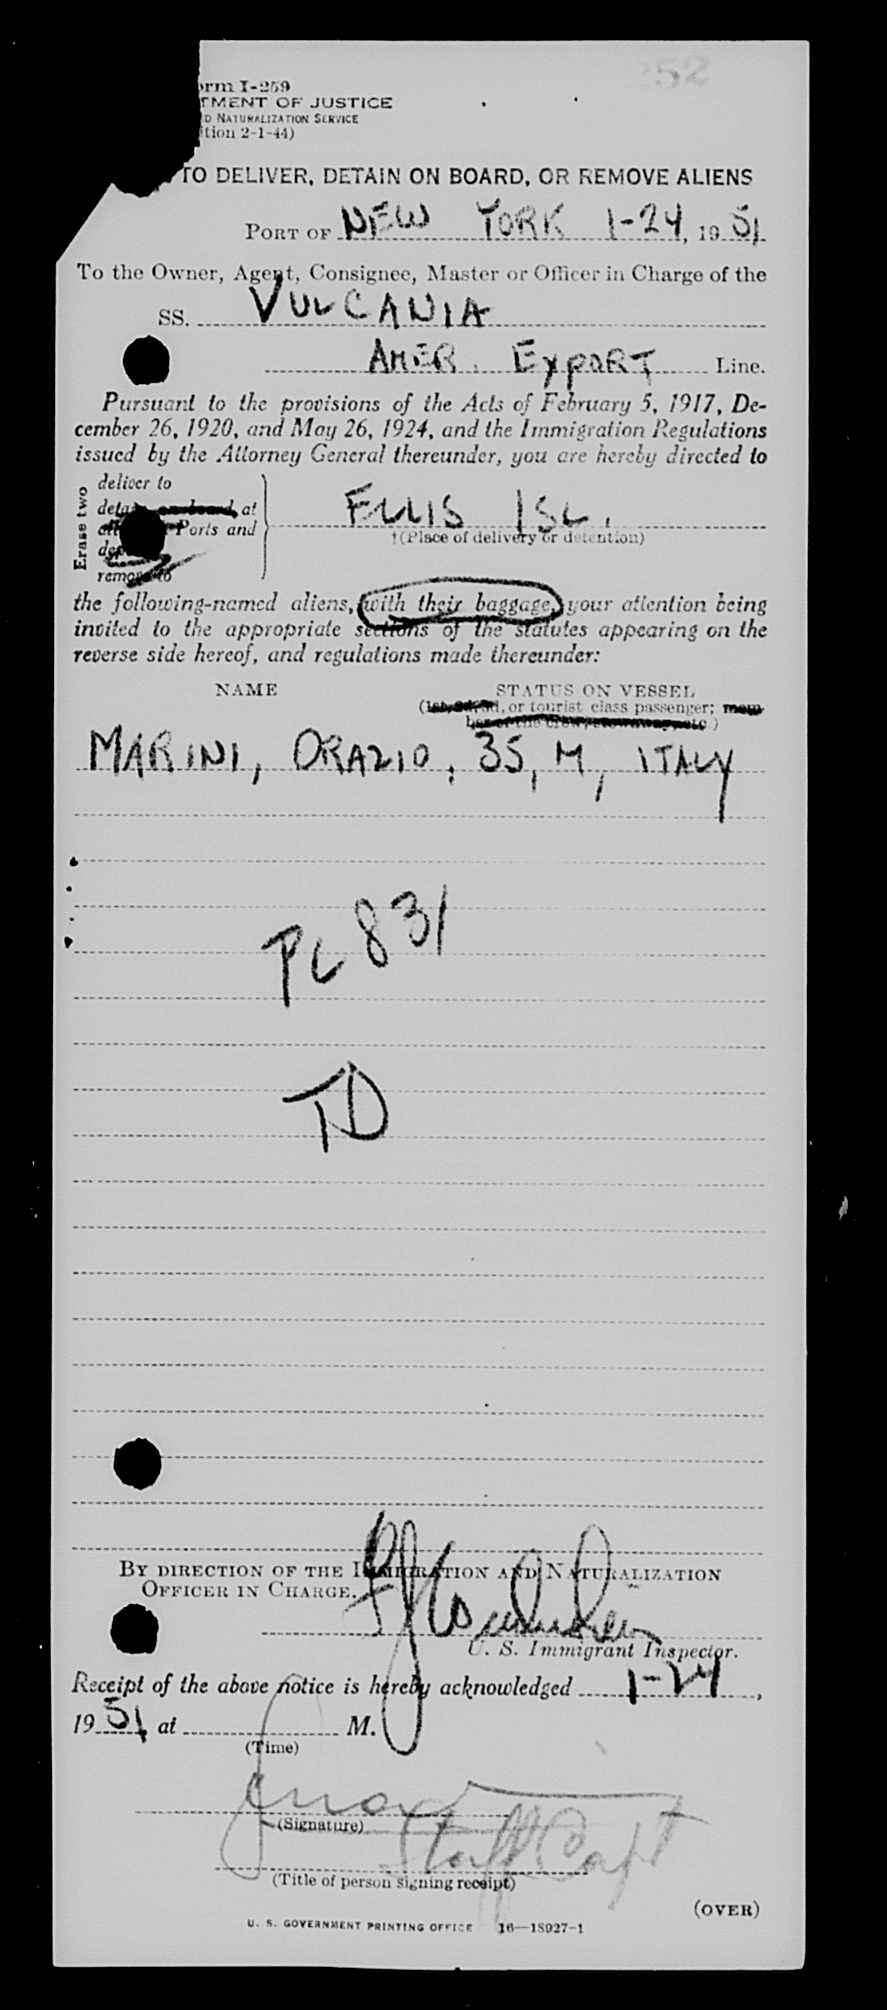 252
orm I-259
TMENT OF JUSTICE
D NATURALIZATION SERVICE
ition 2-1-44)
TO DELIVER, DETAIN ON BOARD, OR REMOVE ALIENS
PORT OF NEW YORK 1-24, 1951
To the Owner, Agent, Consignee, Master or Officer in Charge of the
SS. VULCANIA
AMER. EXPORT Line.
Pursuant to the provisions of the Acts of February 5, 1917, De-
cember 26, 1920, and May 26, 1924, and the Immigration Regulations
issued by the Attorney General thereunder, you are hereby directed to
Erase two
deliver to
deta on board at
Ports and
remove to
ELLIS ISL.
†(Place of delivery or detention)
the following-named aliens, with their baggage, your attention being
invited to the appropriate sections of the statutes appearing on the
reverse side hereof, and regulations made thereunder:
NAME
STATUS ON VESSEL
(1st, 2d, 3d, or tourist class passenger; mem-
ber of the crew, stowaway, etc.)
MARINI, ORAZIO, 35, M, ITALY
PC 831
TD
BY DIRECTION OF THE IMMIGRATION AND NATURALIZATION
OFFICER IN CHARGE.
U. S. Immigrant Inspector.
Receipt of the above notice is hereby acknowledged 1-24,
1951 at M.
(Time)
(Signature)
Staff Capt
(Title of person signing receipt)
(OVER)
U. S. GOVERNMENT PRINTING OFFICE 16—18927-1